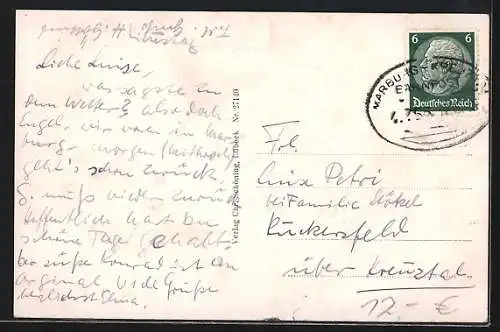 Liebe Luise,
was sagste zu
dem Wetter? also doch
Engel, wir waren in Mar
burg, morgen
geht's schon zurück.
G. muß wieder zurück
Hoffentlich hast Du
schöne Tage gehabt
Der süße Konrad ist ein
Original. Viele Grüße
Verlag Chr. Schöning, Lübeck Nr. 27140
6 6
Deutsches Reich
MARBU
Frl.
Luise Petri
bei Familie Stökel
Rückersfeld
über Kreuztal
12,- €